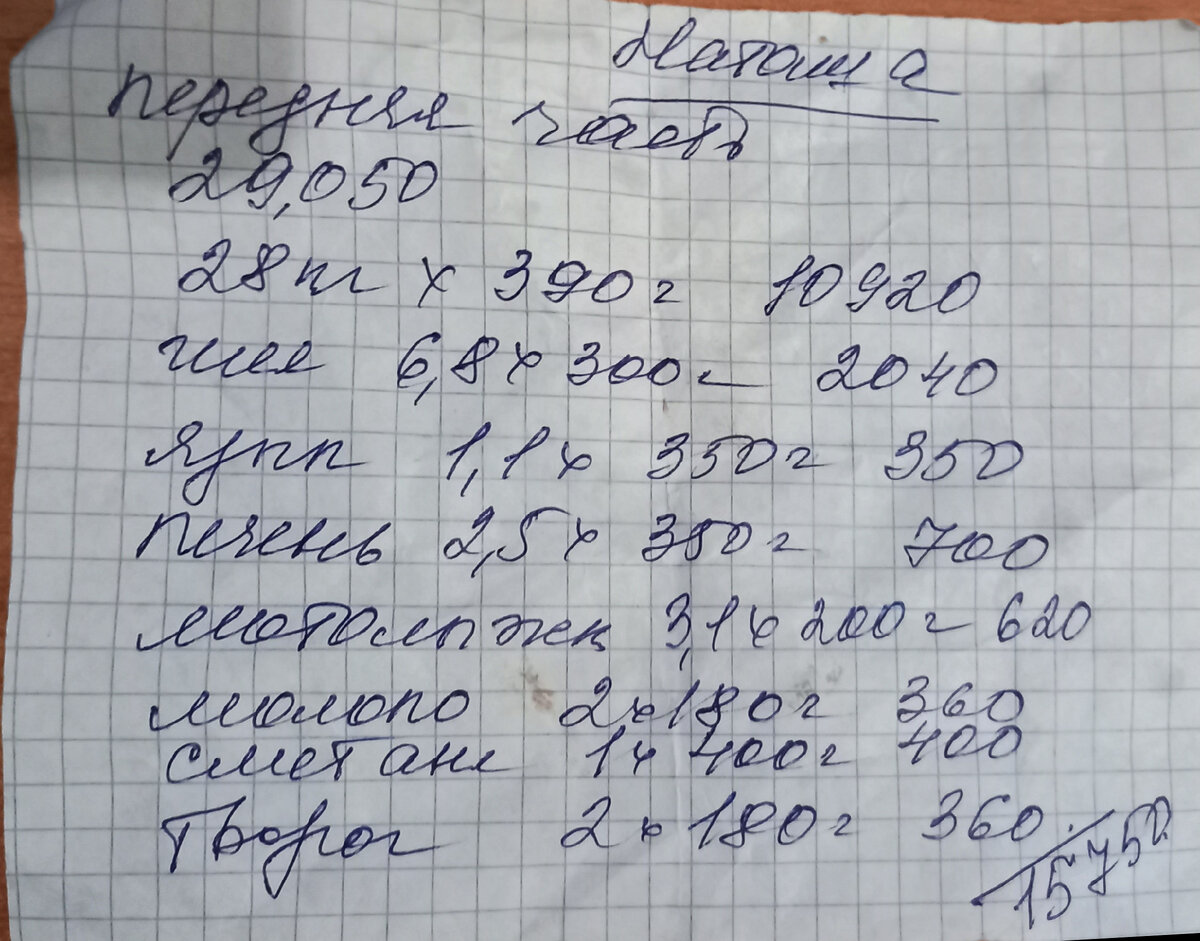 Наташа
передняя часть
29,050
28 кг х 390 = 10920
шея 6,8 х 300 = 2040
язык 1,1 х 350 = 350
печень 2,5 х 350 = 700
мотолыжк 3,1 х 200 = 620
молоко 2 х 180 = 360
сметана 1 х 400 = 400
Творог 2 х 180 = 360.
15750